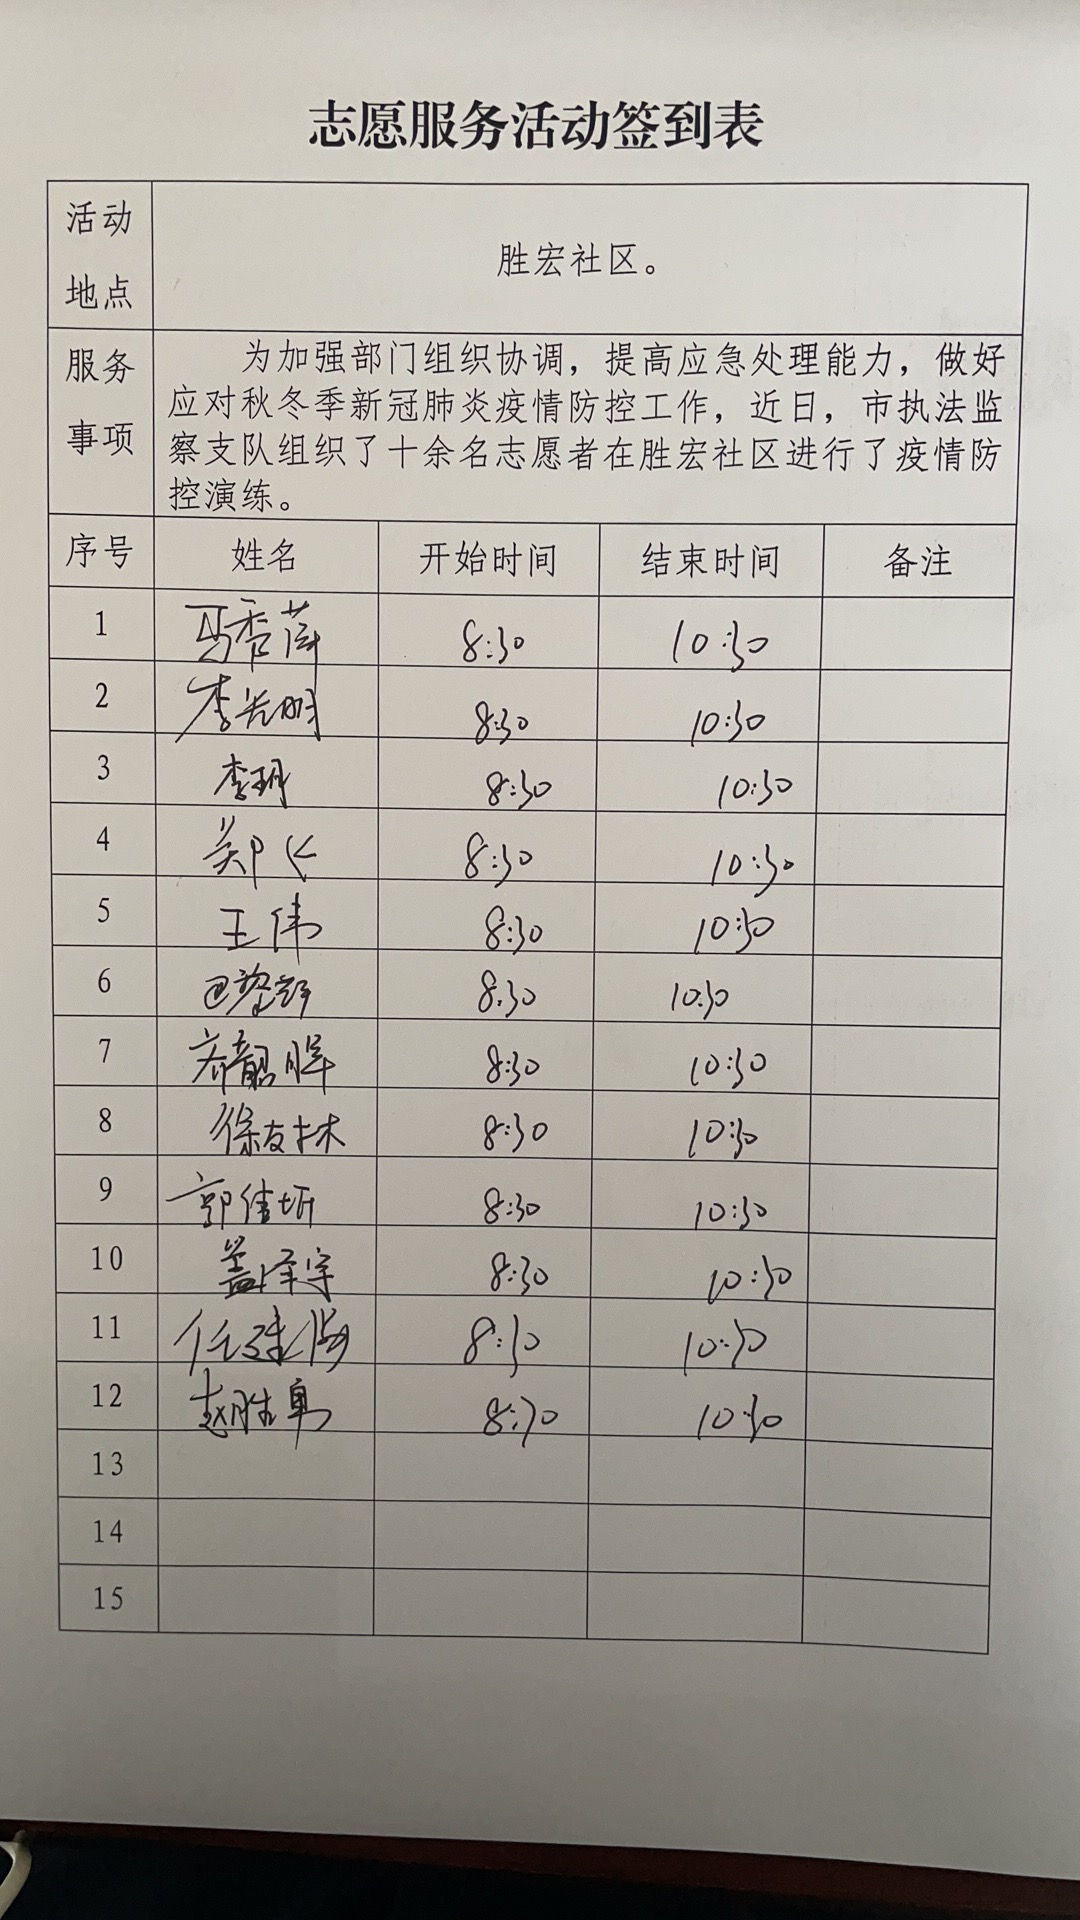 志愿服务活动签到表
活动地点 胜宏社区。
服务事项
为加强部门组织协调，提高应急处理能力，做好
应对秋冬季新冠肺炎疫情防控工作，近日，市执法监
察支队组织了十余名志愿者在胜宏社区进行了疫情防
控演练。
序号 姓名 开始时间 结束时间 备注
1 马秀萍 8:30 10:30
2 李光明 8:30 10:30
3 李玥 8:30 10:30
4 郑 8:30 10:30
5 王伟 8:30 10:30
6 8:30 10:30
7 乔韶晖 8:30 10:30
8 徐友林 8:30 10:30
9 郭佳妍 8:30 10:30
10 盖泽宇 8:30 10:30
11 任建海 8:30 10:30
12 赵胜卓 8:30 10:30
13
14
15